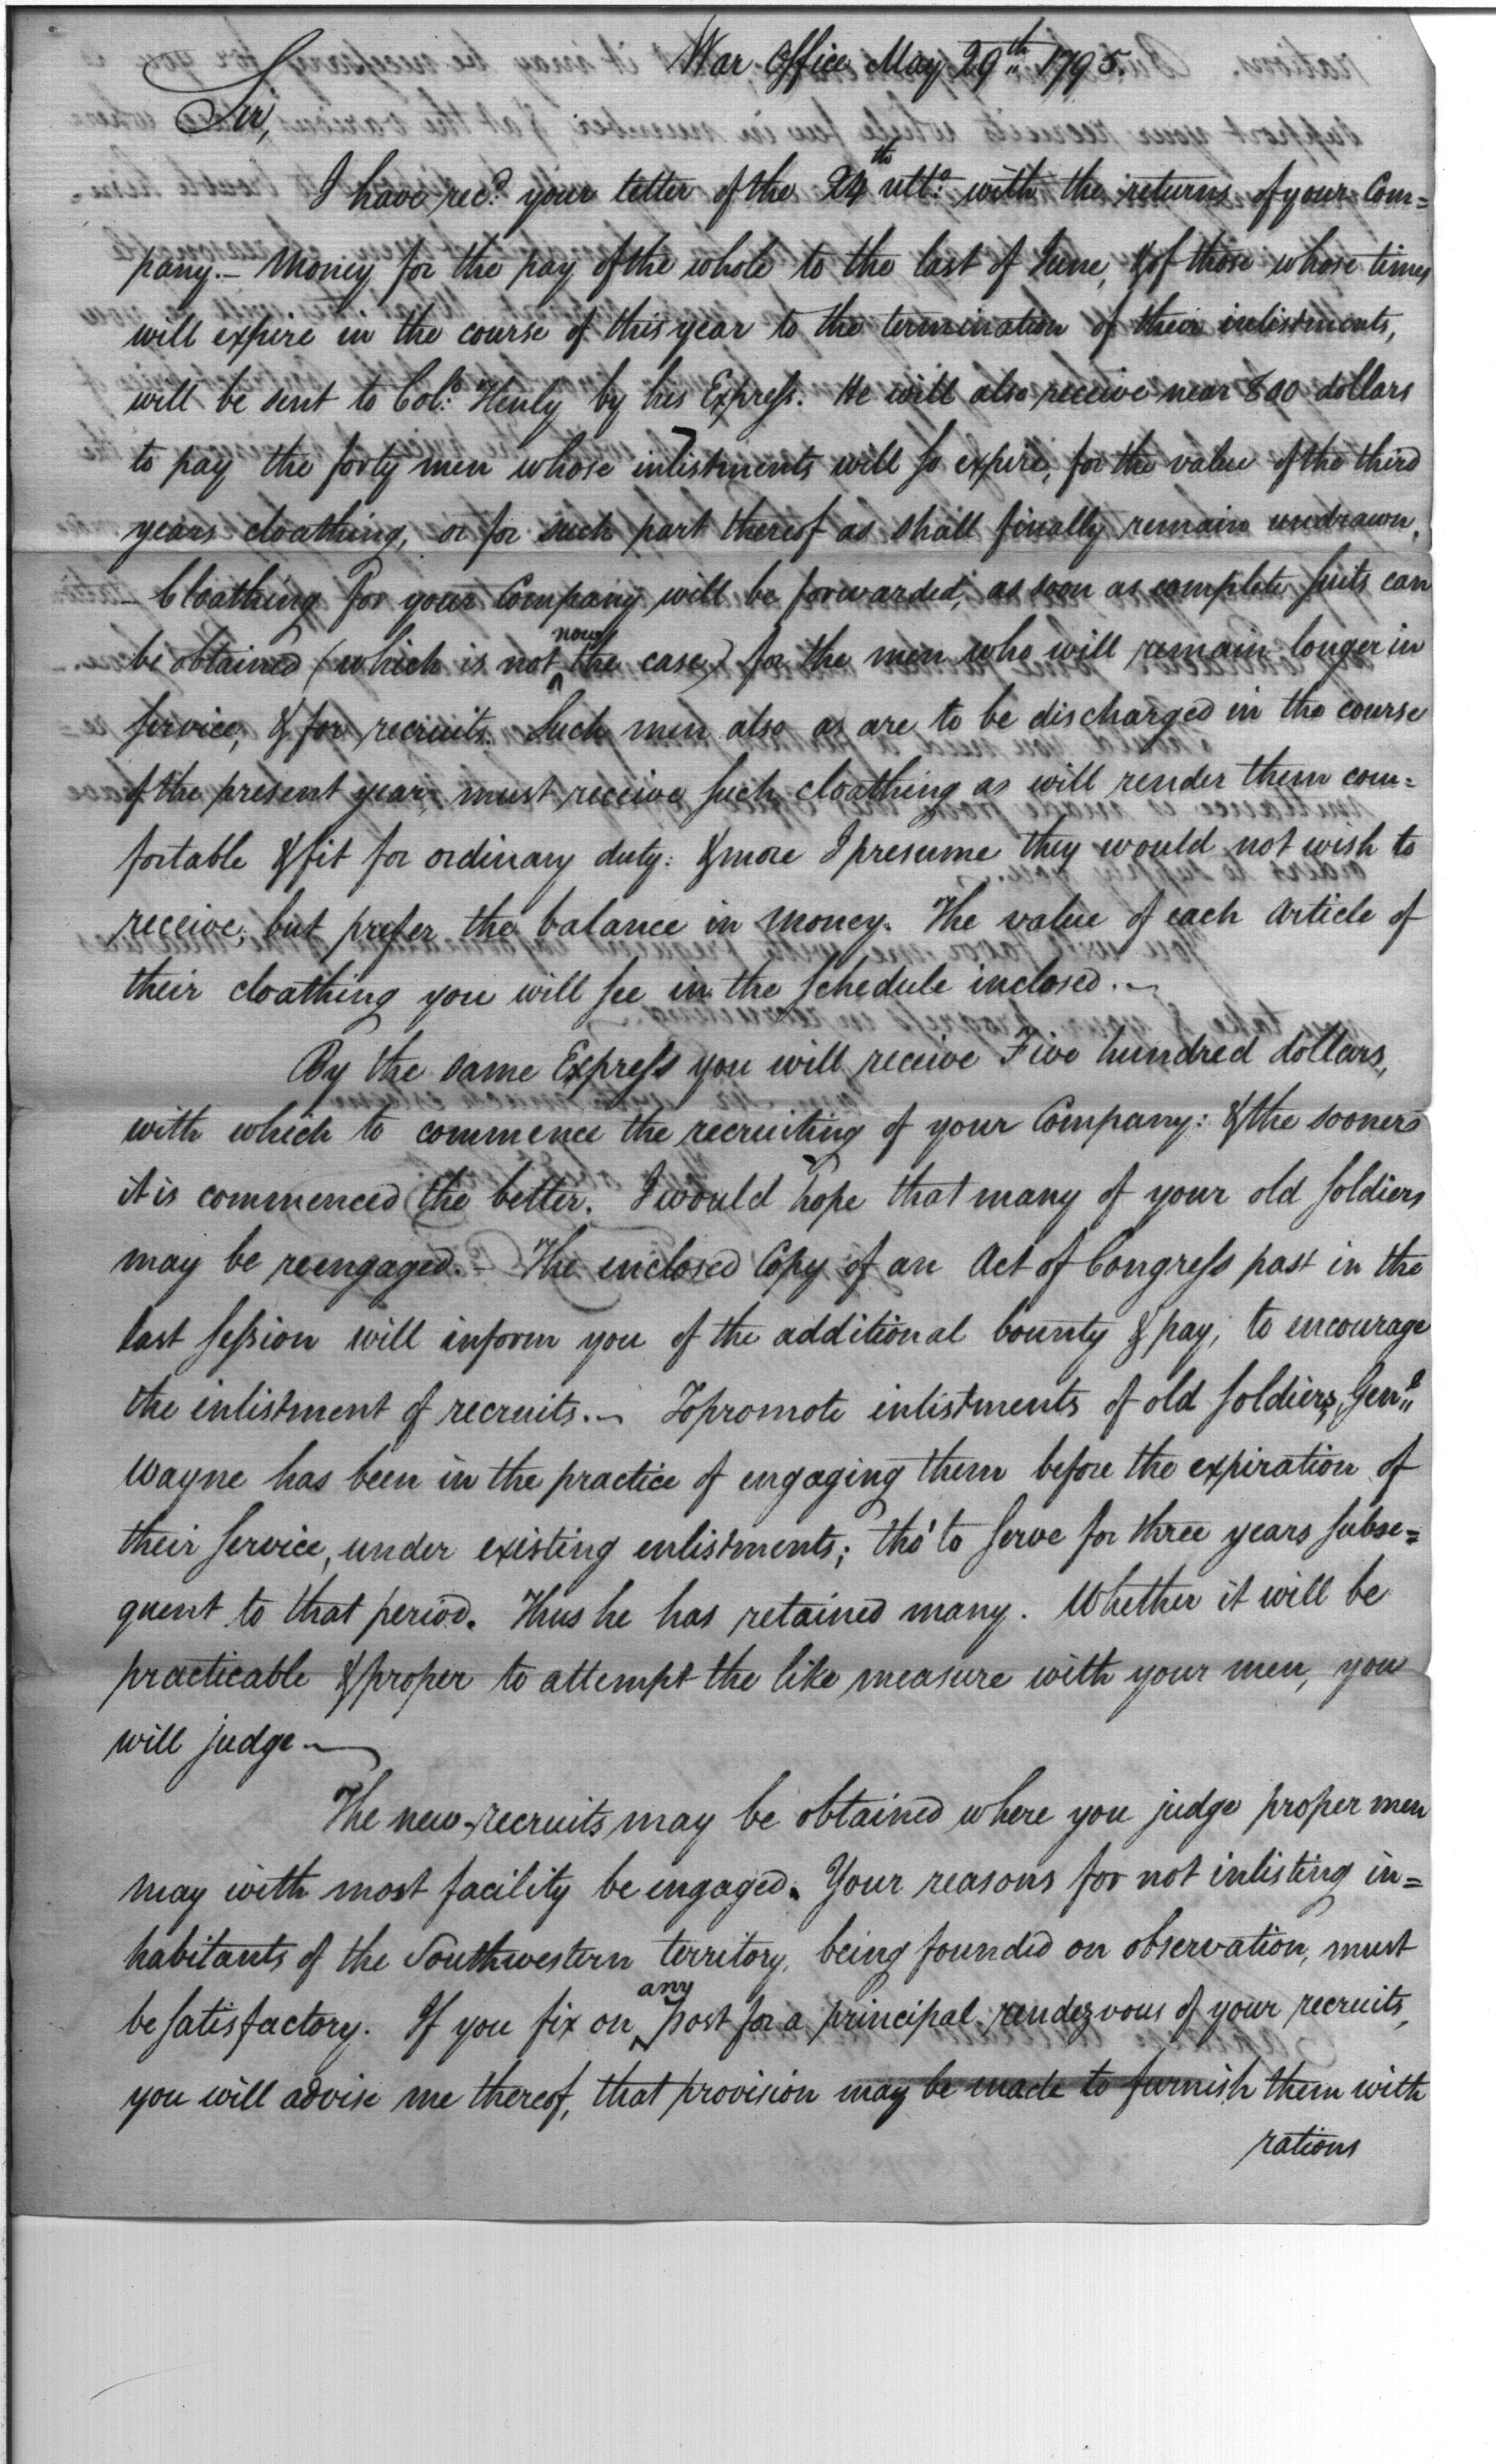 War Office May 29th 1795.
Sir,
I have rec.d your letter of the 24th ult.o with the returns of your Com=
pany.– Money for the pay of the whole to the last of June, & of those whose times
will expire in the course of this year to the termination of their inlistments,
will be sent to Col.o Henly by his Express. He will also receive near 800 dollars
to pay the forty men whose inlistments will so expire, for the value of the third
years cloathing, or for such part thereof as shall finally remain undrawn.
– Cloathing for your Company will be forwarded, as soon as complete suits can
be obtained (which is not now the case) for the men who will remain longer in
service, & for recruits. Such men also as are to be discharged in the course
of the present year, must receive such cloathing as will render them com=
fortable & fit for ordinary duty: & more I presume they would not wish to
receive; but prefer the balance in money. The value of each article of
their cloathing you will see in the schedule inclosed.–
By the same Express you will receive Five hundred dollars,
with which to commence the recruiting of your Company: & the sooner
it is commenced the better. I would hope that many of your old soldiers
may be reengaged.– The enclosed Copy of an Act of Congress past in the
last session will inform you of the additional bounty & pay, to encourage
the inlistment of recruits.– To promote inlistments of old soldiers, Gen.l
Wayne has been in the practice of engaging them before the expiration of
their service, under existing enlistments; tho' to serve for three years subse=
quent to that period. Thus he has retained many. Whether it will be
practicable & proper to attempt the like measure with your men, you
will judge.–
The new recruits may be obtained where you judge proper men
may with most facility be engaged. Your reasons for not inlisting in=
habitants of the Southwestern territory, being founded on observation, must
be satisfactory. If you fix on any post for a principal rendezvous of your recruits,
you will advise me thereof, that provision may be made to furnish them with
rations